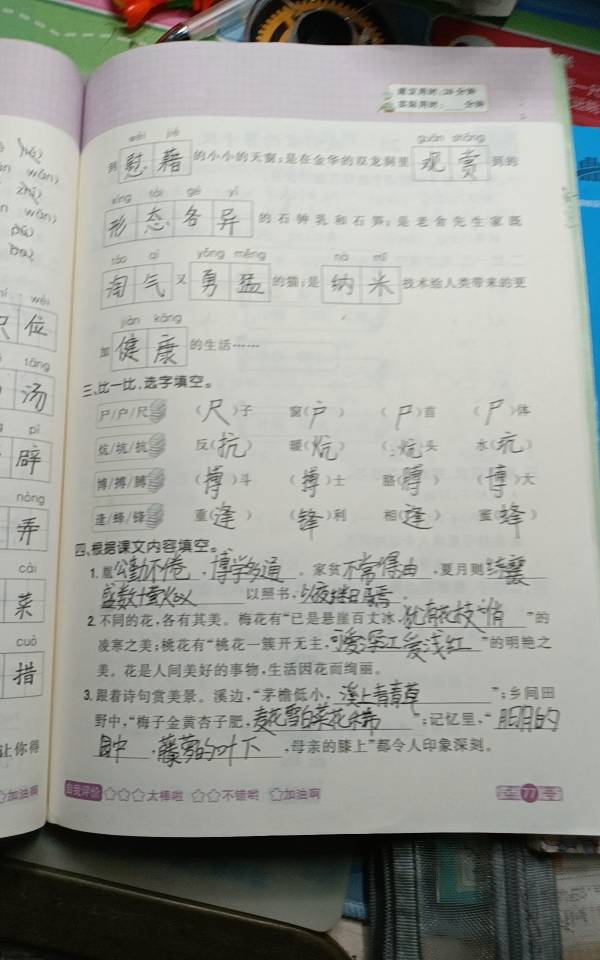 建议用时:20分钟
实际用时: 分钟
wèi jiè guān shǎng
到慰藉的小小的天窗;是在金华的双龙洞里观赏到的
xíng tài gè yì
形态各异的石钟乳和石笋;是老舍先生家既
táo qì yǒng měng nà mǐ
淘气又勇猛的猫;是纳米技术给人类带来的更
jiàn kāng
加健康的生活……
三、比一比,选字填空。
尸/户/尺 (尺)子 窗(户) (尸)首 (尸)体
炕/坑/抗 反(抗) 暖(炕) (炕)头 水(坑)
博/搏/膊 (搏)斗 (博)士 胳(膊) (博)大
逢/蜂/锋 重(逢) (锋)利 相(逢) 蜜(蜂)
四、根据课文内容填空。
1.胤公勤不倦,博学多通。家贫不常得油,夏月则练囊
盛数十萤火以以照书,以夜继日焉。
2.不同的花,各有其美。梅花有“已是悬崖百丈冰,犹有花枝俏”的
凌寒之美;桃花有“桃花一簇开无主,可爱深红爱浅红”的明艳之
美。花是人间美好的事物,生活因花而绚丽。
3.跟着诗句赏美景。溪边,“茅檐低小,溪上青青草”;乡间田
野中,“梅子金黄杏子肥,麦花雪白菜花稀”;记忆里,“月明的
园中,藤萝的叶下,母亲的膝上”都令人印象深刻。
自我评价 ☆☆☆太棒啦 ☆☆不错哟 ☆加油啊
77
wèi
位
tāng
汤
pì
辟
nòng
弄
cài
菜
cuò
措
让你得
☆加油啊